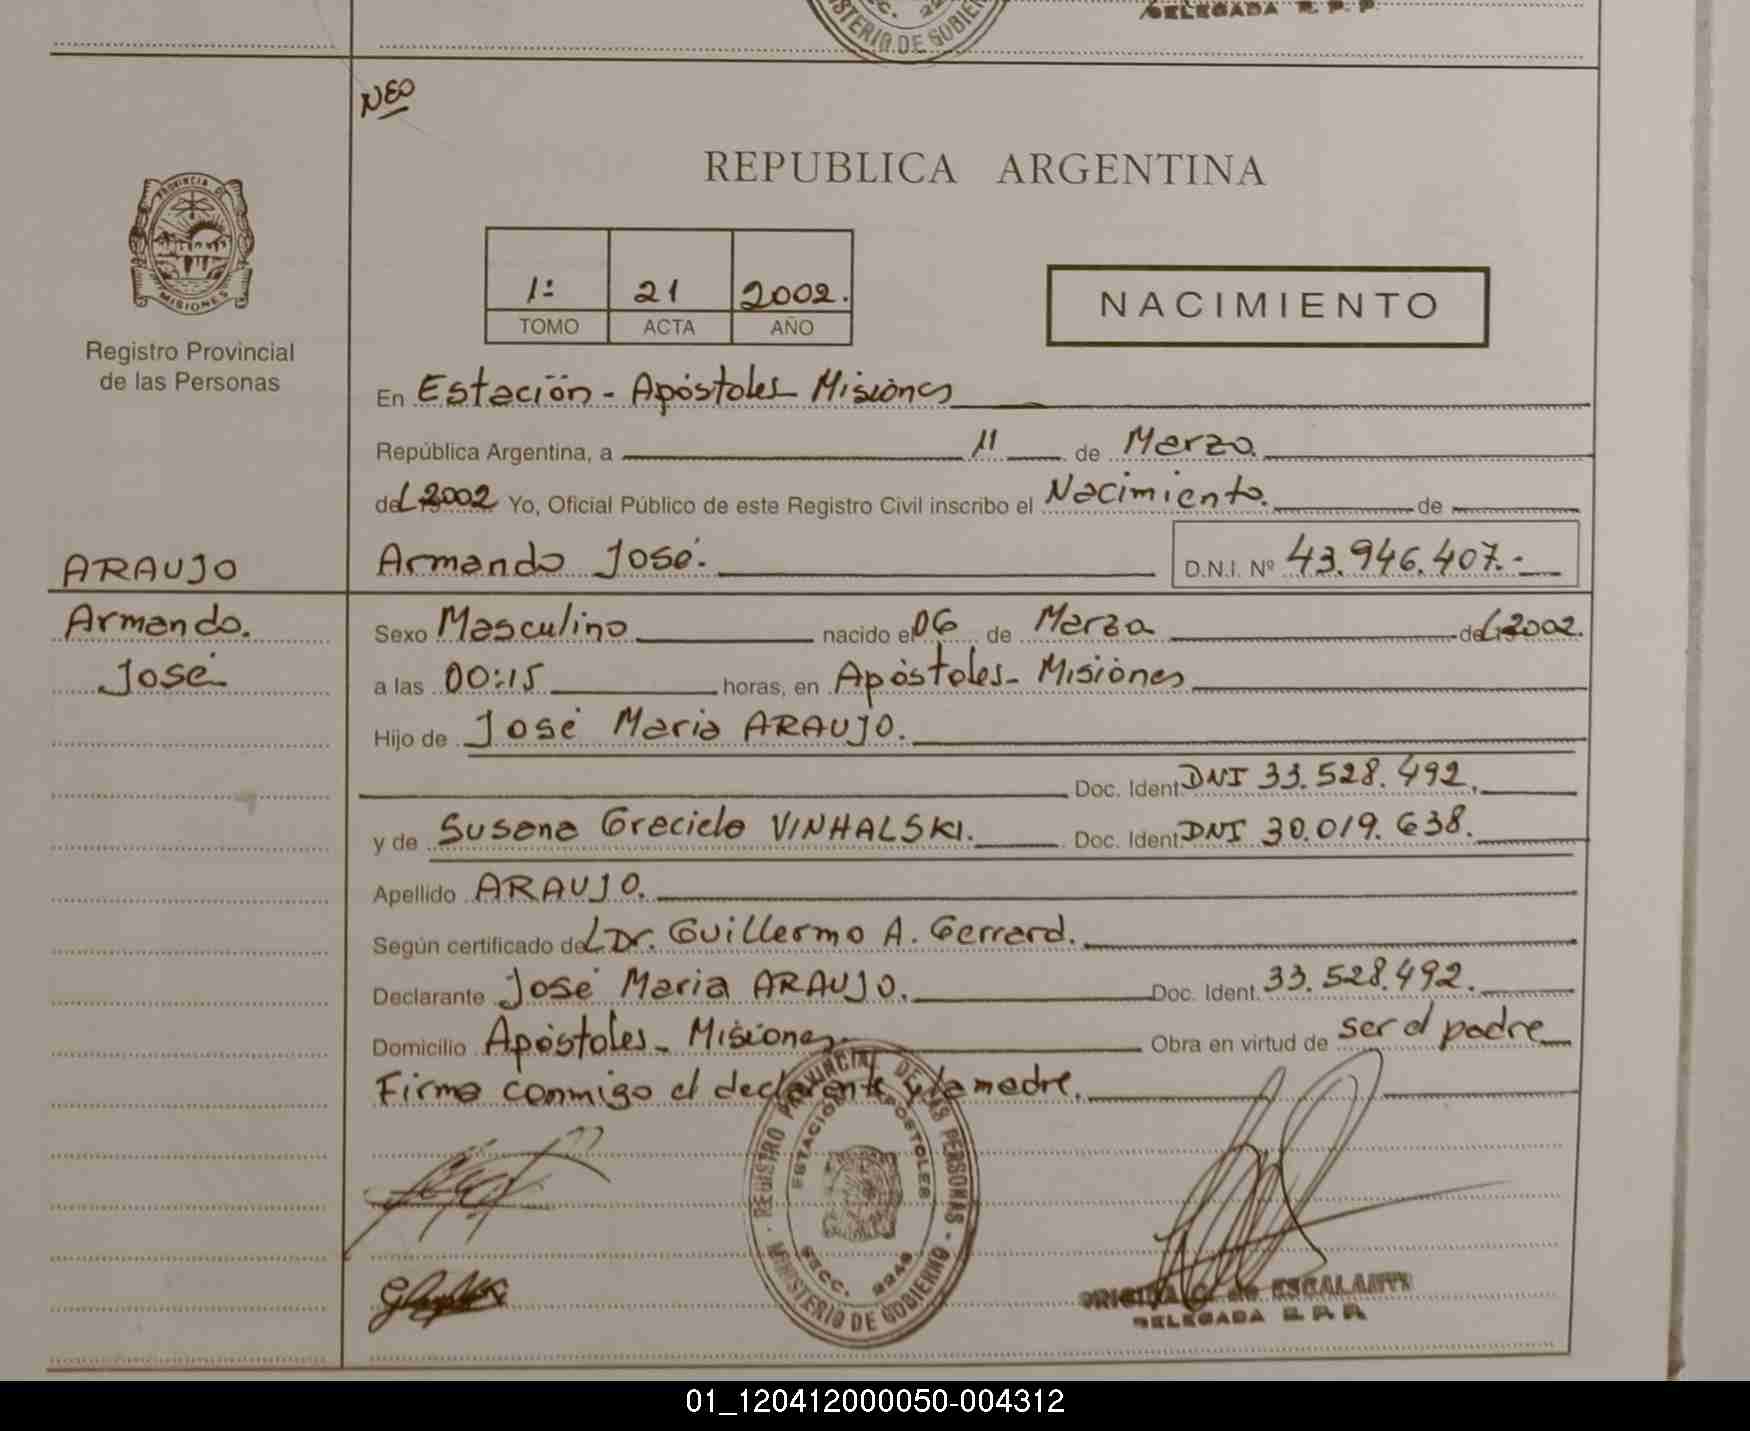 DELEGADA R. P. P.
MINISTERIO DE GOBIERNO
NEO
REPUBLICA ARGENTINA
PROVINCIA DE
MISIONES
1º 21 2002.
TOMO ACTA AÑO
NACIMIENTO
Registro Provincial
de las Personas
En Estación - Apóstoles Misiones
República Argentina, a 11 de Marzo.
del 2002 Yo, Oficial Público de este Registro Civil inscribo el Nacimiento. de
ARAUJO Armando José. D.N.I. Nº 43.946.407.-
Armando. Sexo Masculino nacido el 06 de Marzo del 2002.
José a las 00:15 horas, en Apóstoles - Misiones
Hijo de José Maria ARAUJO.
Doc. Ident. DNI 33.528.492.
y de Susana Graciela VINHALSKI. Doc. Ident. DNI 30.019.638.
Apellido ARAUJO.
Según certificado del Dr. Guillermo A. Gerrard.
Declarante José Maria ARAUJO. Doc. Ident. 33.528.492.
Domicilio Apóstoles - Misiones Obra en virtud de ser el padre
Firma conmigo el declarante y la madre.
REGISTRO PROVINCIAL DE LAS PERSONAS
ESTACION APOSTOLES
SECC. 2246
MINISTERIO DE GOBIERNO
C. de ESCALANTE
DELEGADA R. P. P.
01_120412000050-004312